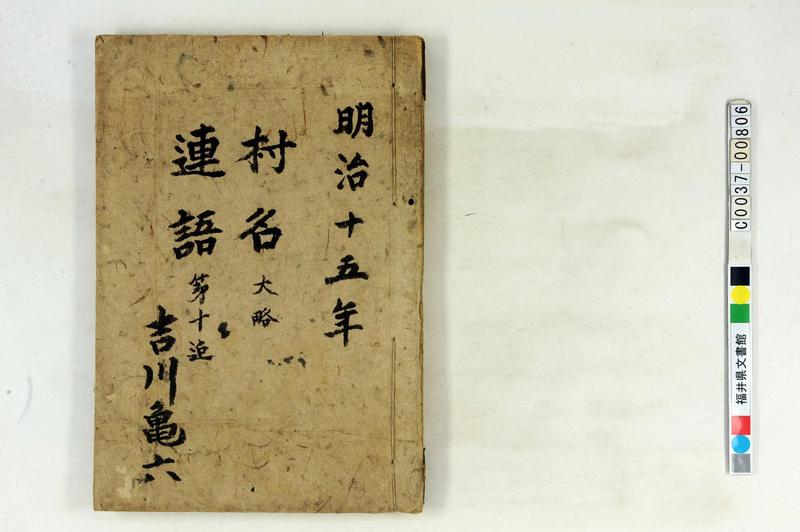 明治十五年
村名大略
連語第十迄
吉川亀六
C0037-00806
福井県文書館